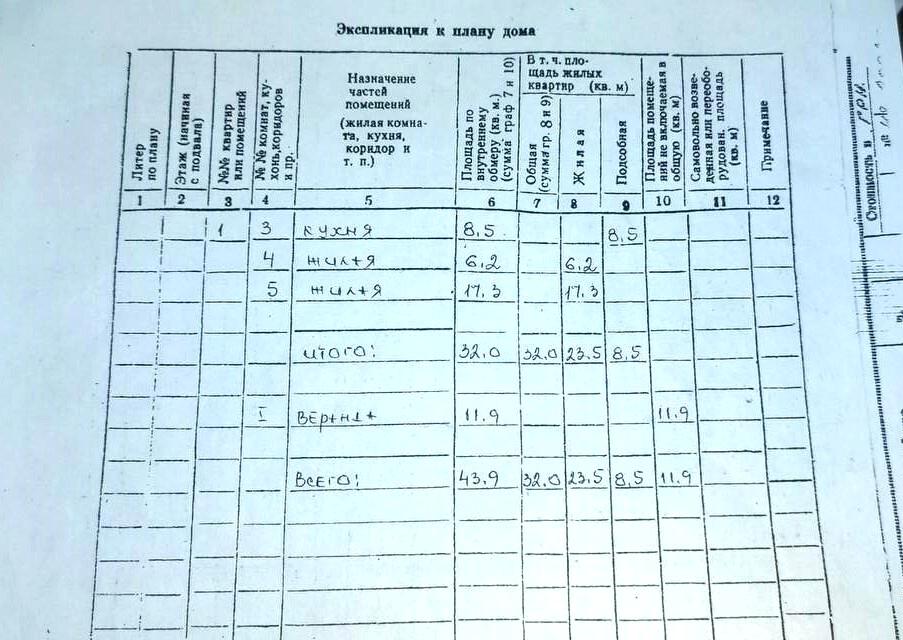 Экспликация к плану дома
Литер
по плану
Этаж (начиная
с подвала)
№№ квартир
или помещений
№ № комнат, ку-
хонь, коридоров
и пр.
Назначение
частей
помещений
(жилая комна-
та, кухня,
коридор и
т. п.)
Площадь по
внутреннему
обмеру (кв. м.)
(сумма граф 7 и 10)
В т. ч. пло-
щадь жилых
квартир (кв. м)
Общая
(сумма гр. 8 и 9)
Жилая
Подсобная
Площадь помеще-
ний не включаемая в
общую (кв. м)
Самовольно возве-
денная или переобо-
рудован. площадь
(кв. м)
Примечание
1 2 3 4 5 6 7 8 9 10 11 12
1 3 кухня 8,5 8,5
4 жилая 6,2 6,2
5 жилая 17,3 17,3
итого: 32,0 32,0 23,5 8,5
I веранда 11.9 11.9
всего: 43,9 32,0 23,5 8,5 11,9
Стоимость в грн.
№